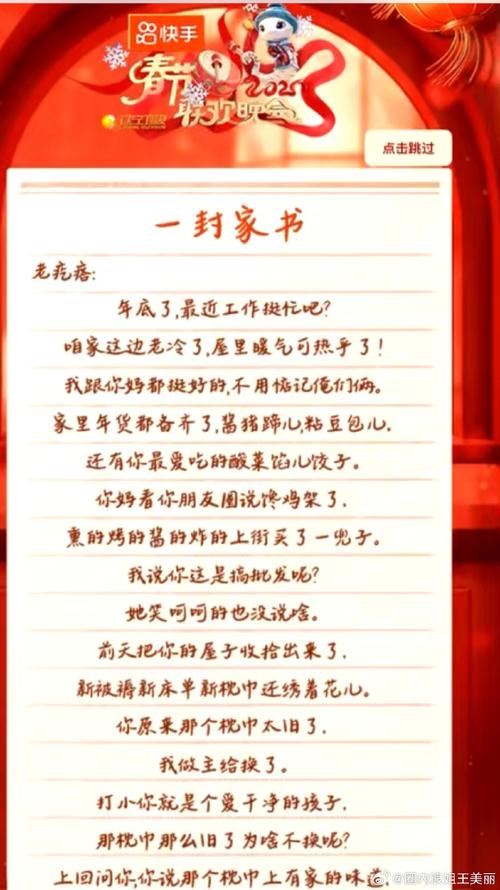 快手
春节2025
联欢晚会
点击跳过
一封家书
老疙瘩:
年底了,最近工作挺忙吧?
咱家这边老冷了,屋里暖气可热乎了!
我跟你妈都挺好的,不用惦记俺们俩。
家里年货都备齐了,酱猪蹄儿,粘豆包儿.
还有你最爱吃的酸菜馅儿饺子。
你妈看你朋友圈说馋鸡架了.
熏的烤的酱的炸的上街买了一兜子。
我说你这是搞批发呢?
她笑呵呵的也没说啥。
前天把你的屋子收拾出来了.
新被褥新床单新枕巾还绣着花儿。
你原来那个枕巾太旧了.
我做主给换了。
打小你就是个爱干净的孩子.
那枕巾那么旧了为啥不换呢?
上回问你,你说那个枕巾上有家的味道.
@圈内狠姐王美丽